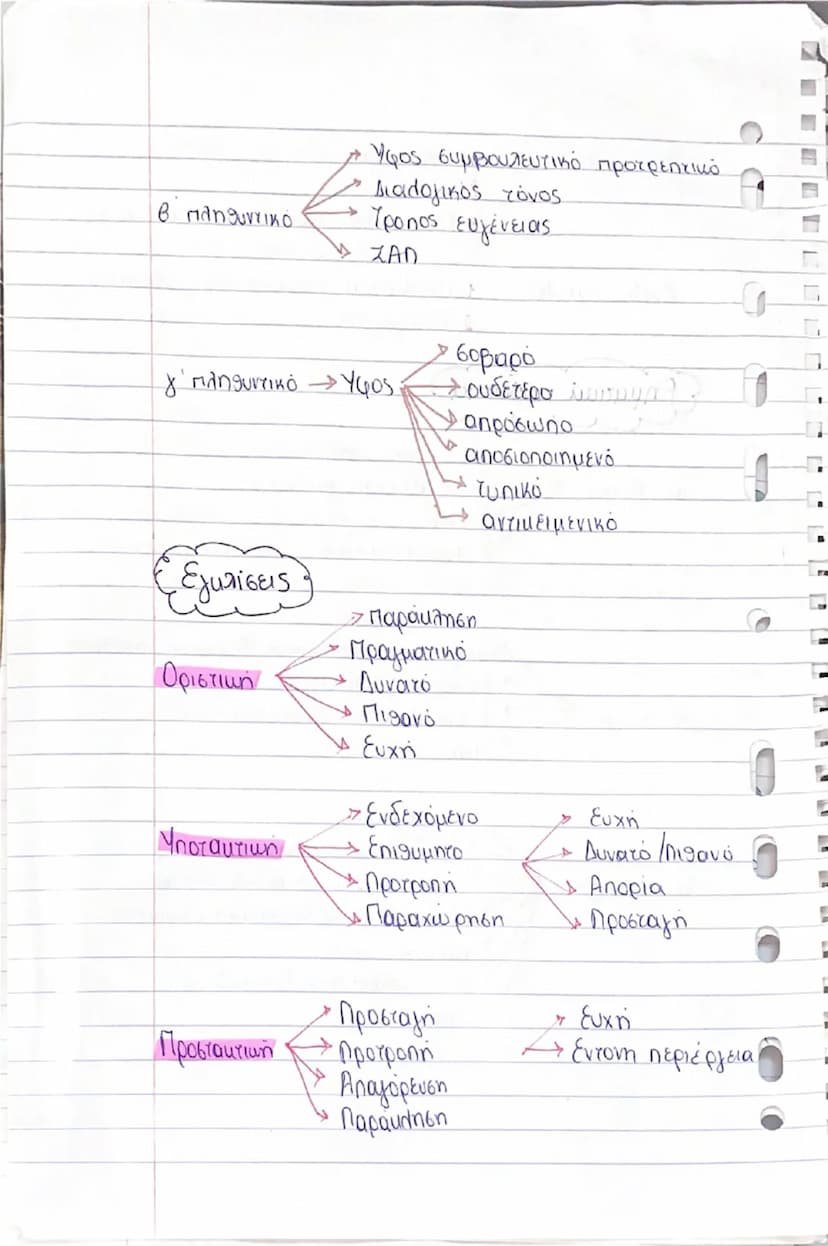 Ύφος συμβουλευτικό προτρεπτικό
Διαλογικός τόνος
β' πληθυντικό
Τρόπος ευγένειας
ΣΑΠ
σοβαρό
γ' πληθυντικό → Ύφος
ουδέτερο
απρόσωπο
αποσιοποιημένό
τυπικό
αντικειμενικό
Εγκλίσεις
Παράκληση
Πραγματικό
Οριστική
Δυνατό
Πιθανό
Ευχή
Ενδεχόμενο
Ευχή
Υποτακτική
Επιθυμητο
Δυνατό/Πιθανό
Προτροπή
Απορία
Παραχώρηση
Προσταγή
Προσταγή
Ευχή
Προστακτική
Προτροπή
Έντονη περιέργεια
Απαγόρευση
Παράκληση